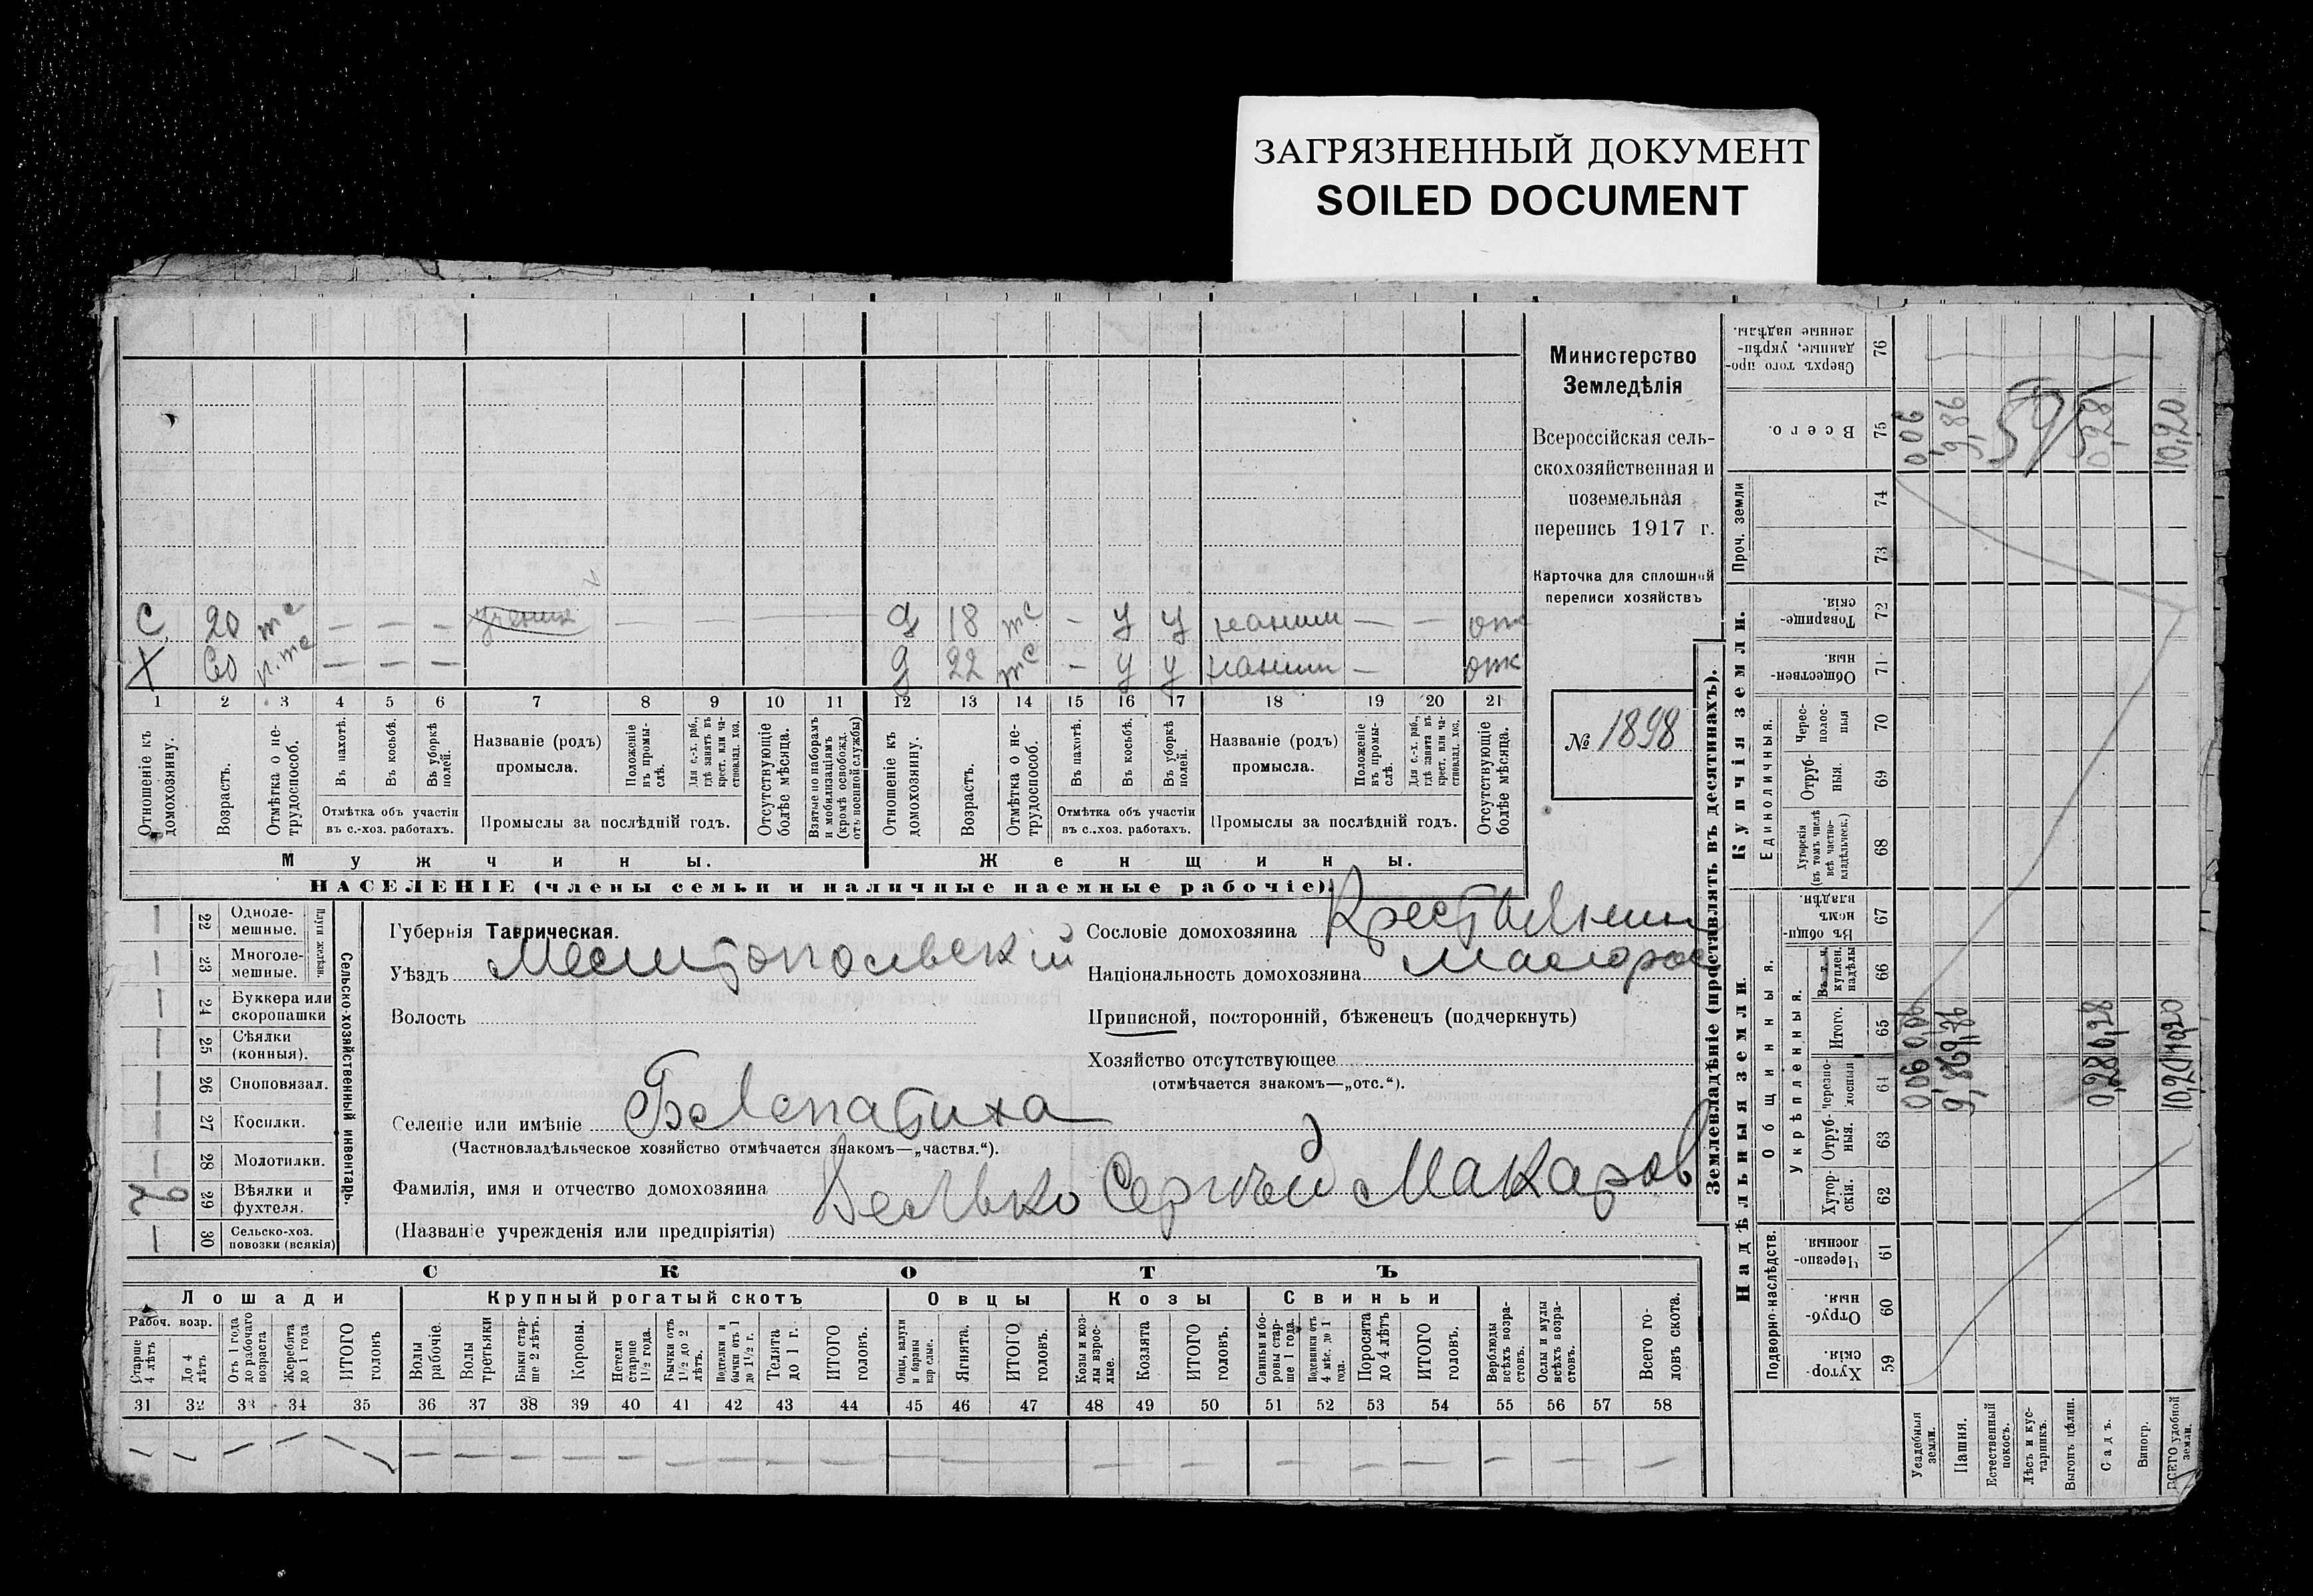 ЗАГРЯЗНЕННЫЙ ДОКУМЕНТ
SOILED DOCUMENT
Министерство
Земледѣлія
Всероссійская сель-
скохозяйственная и
поземельная
перепись 1917 г.
Карточка для сплошной
переписи хозяйствъ
№ 1898
С 20 — — — — — — — 18 — У У —
Х 60 — — — 22 — У У —
1 2 3 4 5 6 7 8 9 10 11 12 13 14 15 16 17 18 19 20 21
Отношеніе къ домохозяину.
Возрастъ.
Отмѣтка о не-трудоспособ.
Въ пахотѣ.
Въ косьбѣ.
Въ уборкѣ полей.
Отмѣтка объ участіи
въ с.-хоз. работахъ.
Названіе (родъ)
промысла.
Положеніе въ промы-слѣ.
Для с.-х. раб., гдѣ занятъ въ крест. или ча-стновлад. хоз.
Промыслы за послѣдній годъ.
Отсутствующіе болѣе мѣсяца.
Взятые по наборамъ и мобилизаціямъ (кромѣ освобожд. отъ военной службы)
Отношеніе къ домохозяину.
Возрастъ.
Отмѣтка о не-трудоспособ.
Въ пахотѣ.
Въ косьбѣ.
Въ уборкѣ полей.
Отмѣтка объ участіи
въ с.-хоз. работахъ.
Названіе (родъ)
промысла.
Положеніе въ промы-слѣ.
Для с.-х. раб., гдѣ занята въ крест. или ча-стновлад. хоз.
Промыслы за послѣдній годъ.
Отсутствующіе болѣе мѣсяца.
Мужчины. Женщины.
НАСЕЛЕНІЕ (члены семьи и наличные наемные рабочіе).
Сельско-хозяйственный инвентарь.
22 Одноле-мешные.
23 Многоле-мешные.
24 Буккера или скоропашки
25 Сѣялки (конныя).
26 Сноповязал.
27 Косилки.
28 Молотилки.
29 Вѣялки и фухтеля.
30 Сельско-хоз. повозки (всякія)
Губернія Таврическая.
Уѣздъ Мелитопольскій
Волость
Селеніе или имѣніе
(Частновладѣльческое хозяйство отмѣчается знакомъ—„частвл.“).
Фамилія, имя и отчество домохозяина Сергѣй Макаров
(Названіе учрежденія или предпріятія)
Сословіе домохозяина Крестьянин
Національность домохозяина Малорос
Приписной, посторонній, бѣженецъ (подчеркнуть)
Хозяйство отсутствующее
(отмѣчается знакомъ—„отс.“).
СКОТЪ
Лошади Крупный рогатый скотъ Овцы Козы Свиньи
Рабоч. возр.
Старше 4 лѣтъ
До 4 лѣтъ
Отъ 1 года до рабочаго возраста
Жеребята до 1 года
ИТОГО головъ
Волы рабочіе.
Волы третьяки
Быки стар-ше 2 лѣтъ.
Коровы.
Нетели старше 1½ года.
Бычки отъ 1½ до 2 лѣтъ.
Подтелки и бычки отъ 1 до 1½ г.
Телята до 1 г.
ИТОГО головъ.
Овцы, валухи и бараны взрослые.
Ягнята.
ИТОГО головъ.
Козы и коз-лы взрос-лые.
Козлята
ИТОГО головъ.
Свиньи и бо-ровы стар-ше 1 года.
Подсвинки отъ 4 мѣс. до 1 года.
ИТОГО головъ.
Верблюды всѣхъ возра-стовъ.
Ослы и мулы всѣхъ возра-стовъ.
Всего го-ловъ скота.
31 32 33 34 35 36 37 38 39 40 41 42 43 44 45 46 47 48 49 50 51 52 53 54 55 56 57 58
Землевладѣніе (проставлять въ десятинахъ).
Надѣльныя земли. Купчія земли.
Подворно-наслѣдств.
Общинныя.
Укрѣпленныя.
Единоличныя.
Проч. земли
59 Хутор-скія.
60 Отруб-ныя.
61 Черезпо-лосныя
62 Хутор-скія.
63 Отруб-ныя.
64 Черезпо-лосныя
65 Итого.
66 куплен. надѣлы
67 Въ общин-номъ владѣн.
68 Хуторскія (въ томъ числѣ всѣ частно-владѣльческ.)
69 Отруб-ныя.
70 Черес-полос-ныя
71 Обществен-ныя.
72 Товарище-скія.
73
74
75 Всего.
76 Сверхъ того про-данные, укрѣп-ленные надѣлы.
Усадебныя земли. 0,06 0,06 0,06
Пашня. 9,86 9,86 9,86
Естественный покосъ.
Лѣсъ и кус-тарникъ.
Выгонъ цѣлин.
Садъ. 0,28 0,28 0,28
Виногр.
ВСЕГО удобной земли. 10,20 10,20 10,20